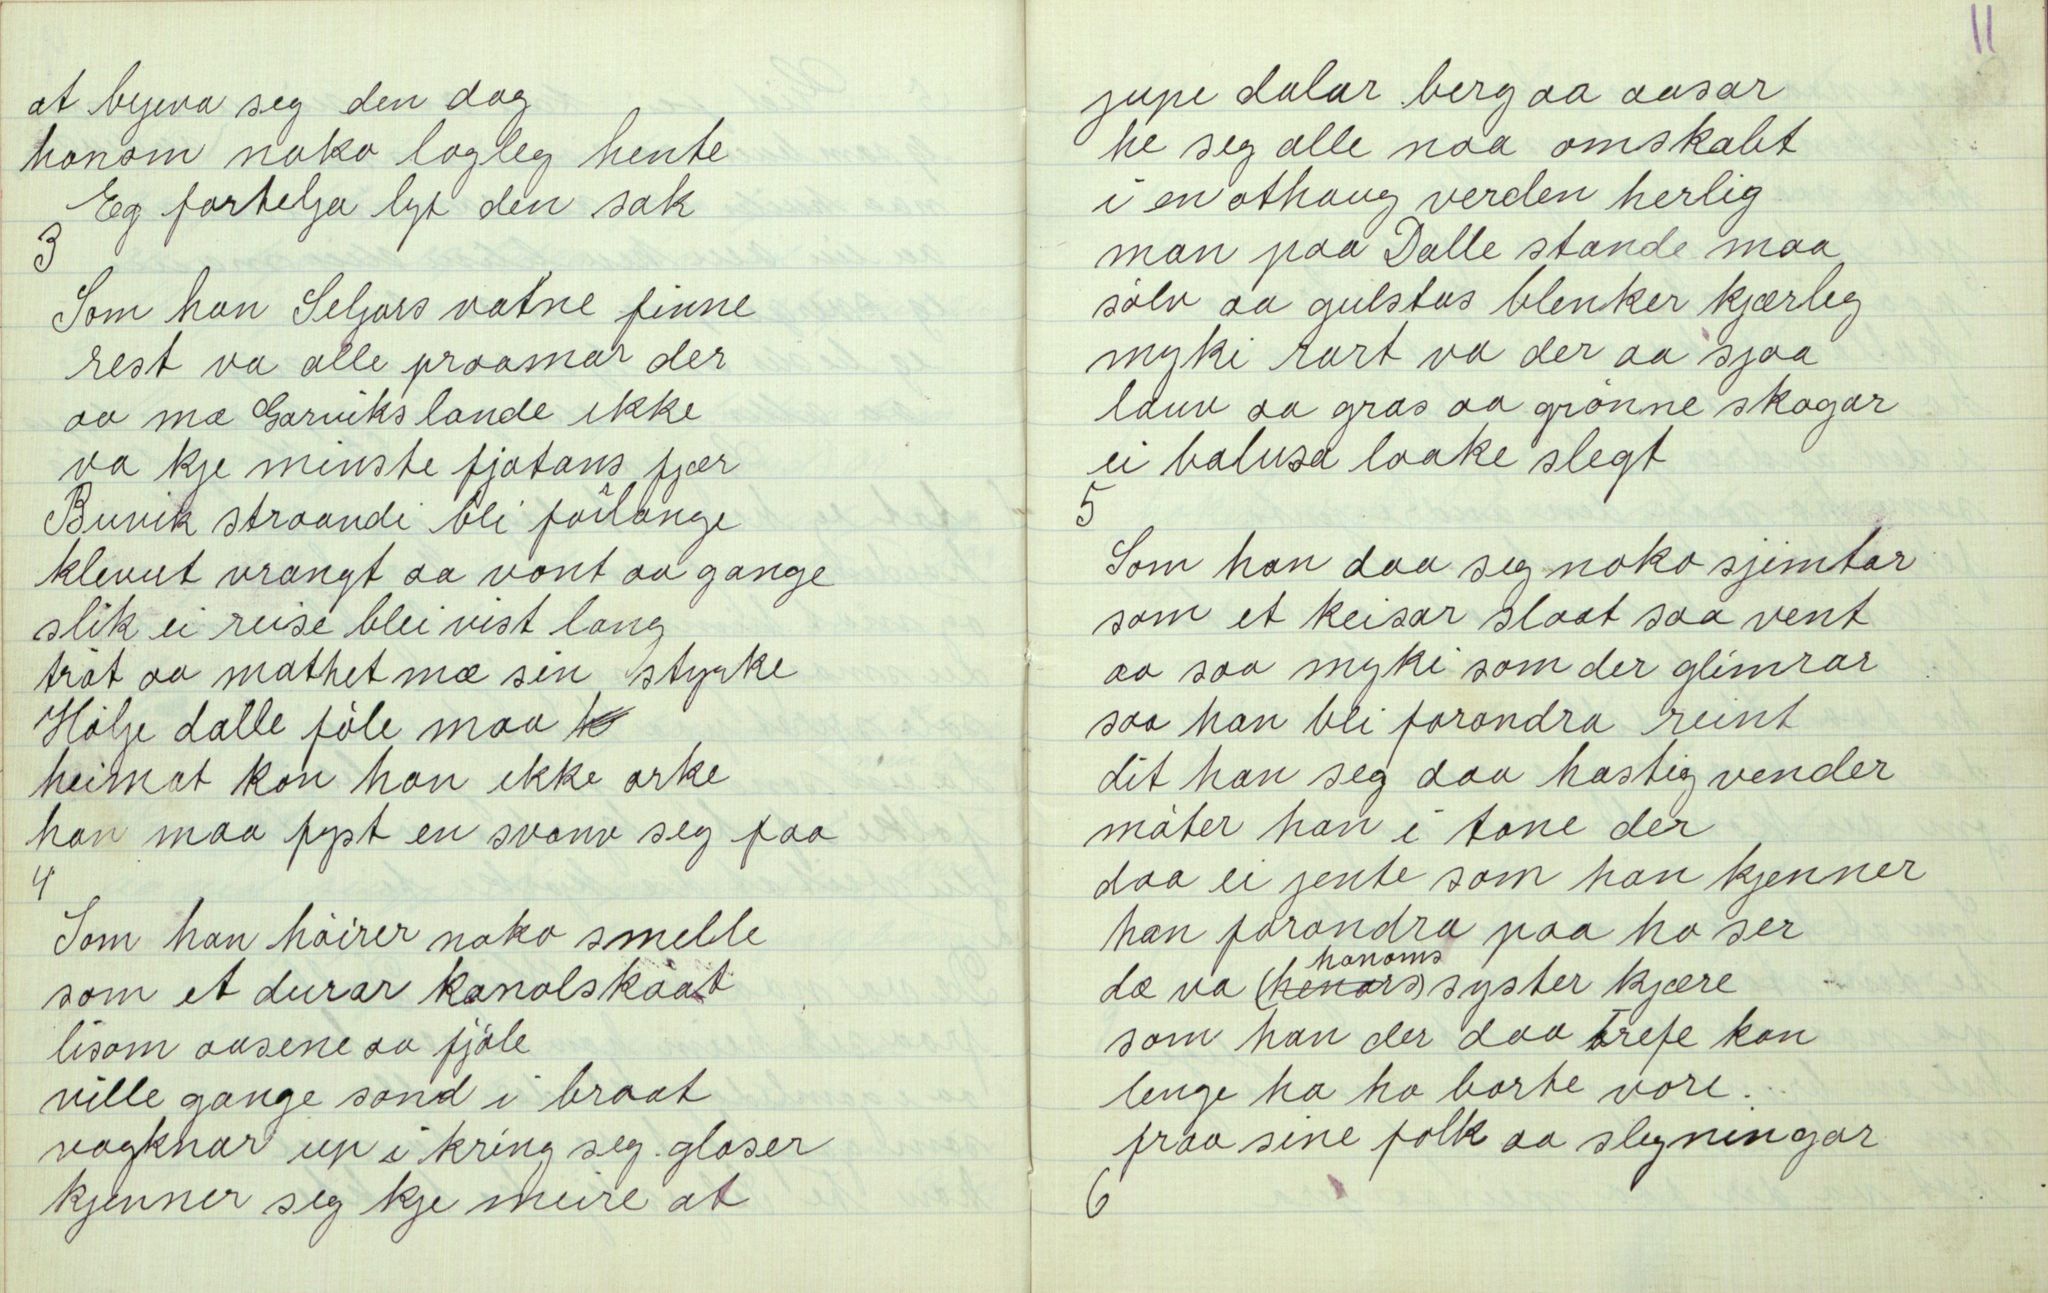 at bejeva seg den dag
honom noko logleg hente
Eg fortelja lyt den sak
3
Som han Seljors vatne finne
rest va alle praamar der
aa mæ Garvikslande ikke
va kje minste fjatans fjær
Buvik straandi bli förlange
klevut vrangt aa vont aa gange
slik ei reise blei vist lang
tröt aa mathet mæ sin styrke
Hölje dalle föle maa
heimat kon han ikke orke
han maa fyst en svavn seg faa
4
Som han höirer noko smelle
som et durar kanolskaat
lisom aasene aa fjöle
ville gange sond i braat
vogknar up i kring seg gloser
kjenner seg kje meire at
11
jupe dalar berg aa aasar
he seg alle naa omskabt
i en othaug verden herlig
man paa Dalle stande maa
sölv aa gulstas blenker kjærleg
myki rart va der aa sjaa
lauv aa gras aa grönne skogar
ei balusa laake slegt
5
Som han daa seg noko sjimtar
som et keisar slaat saa vent
aa saa myki som der glimrar
saa han bli forandra reint
dit han seg daa hastig vender
möter han i tone der
daa ei jente som han kjenner
han forandra paa ho ser
honoms
dæ va (henars) syster kjære
som han der daa trefe kan
lenge ha ho borte vore.
fraa sine folk aa slegningar
6